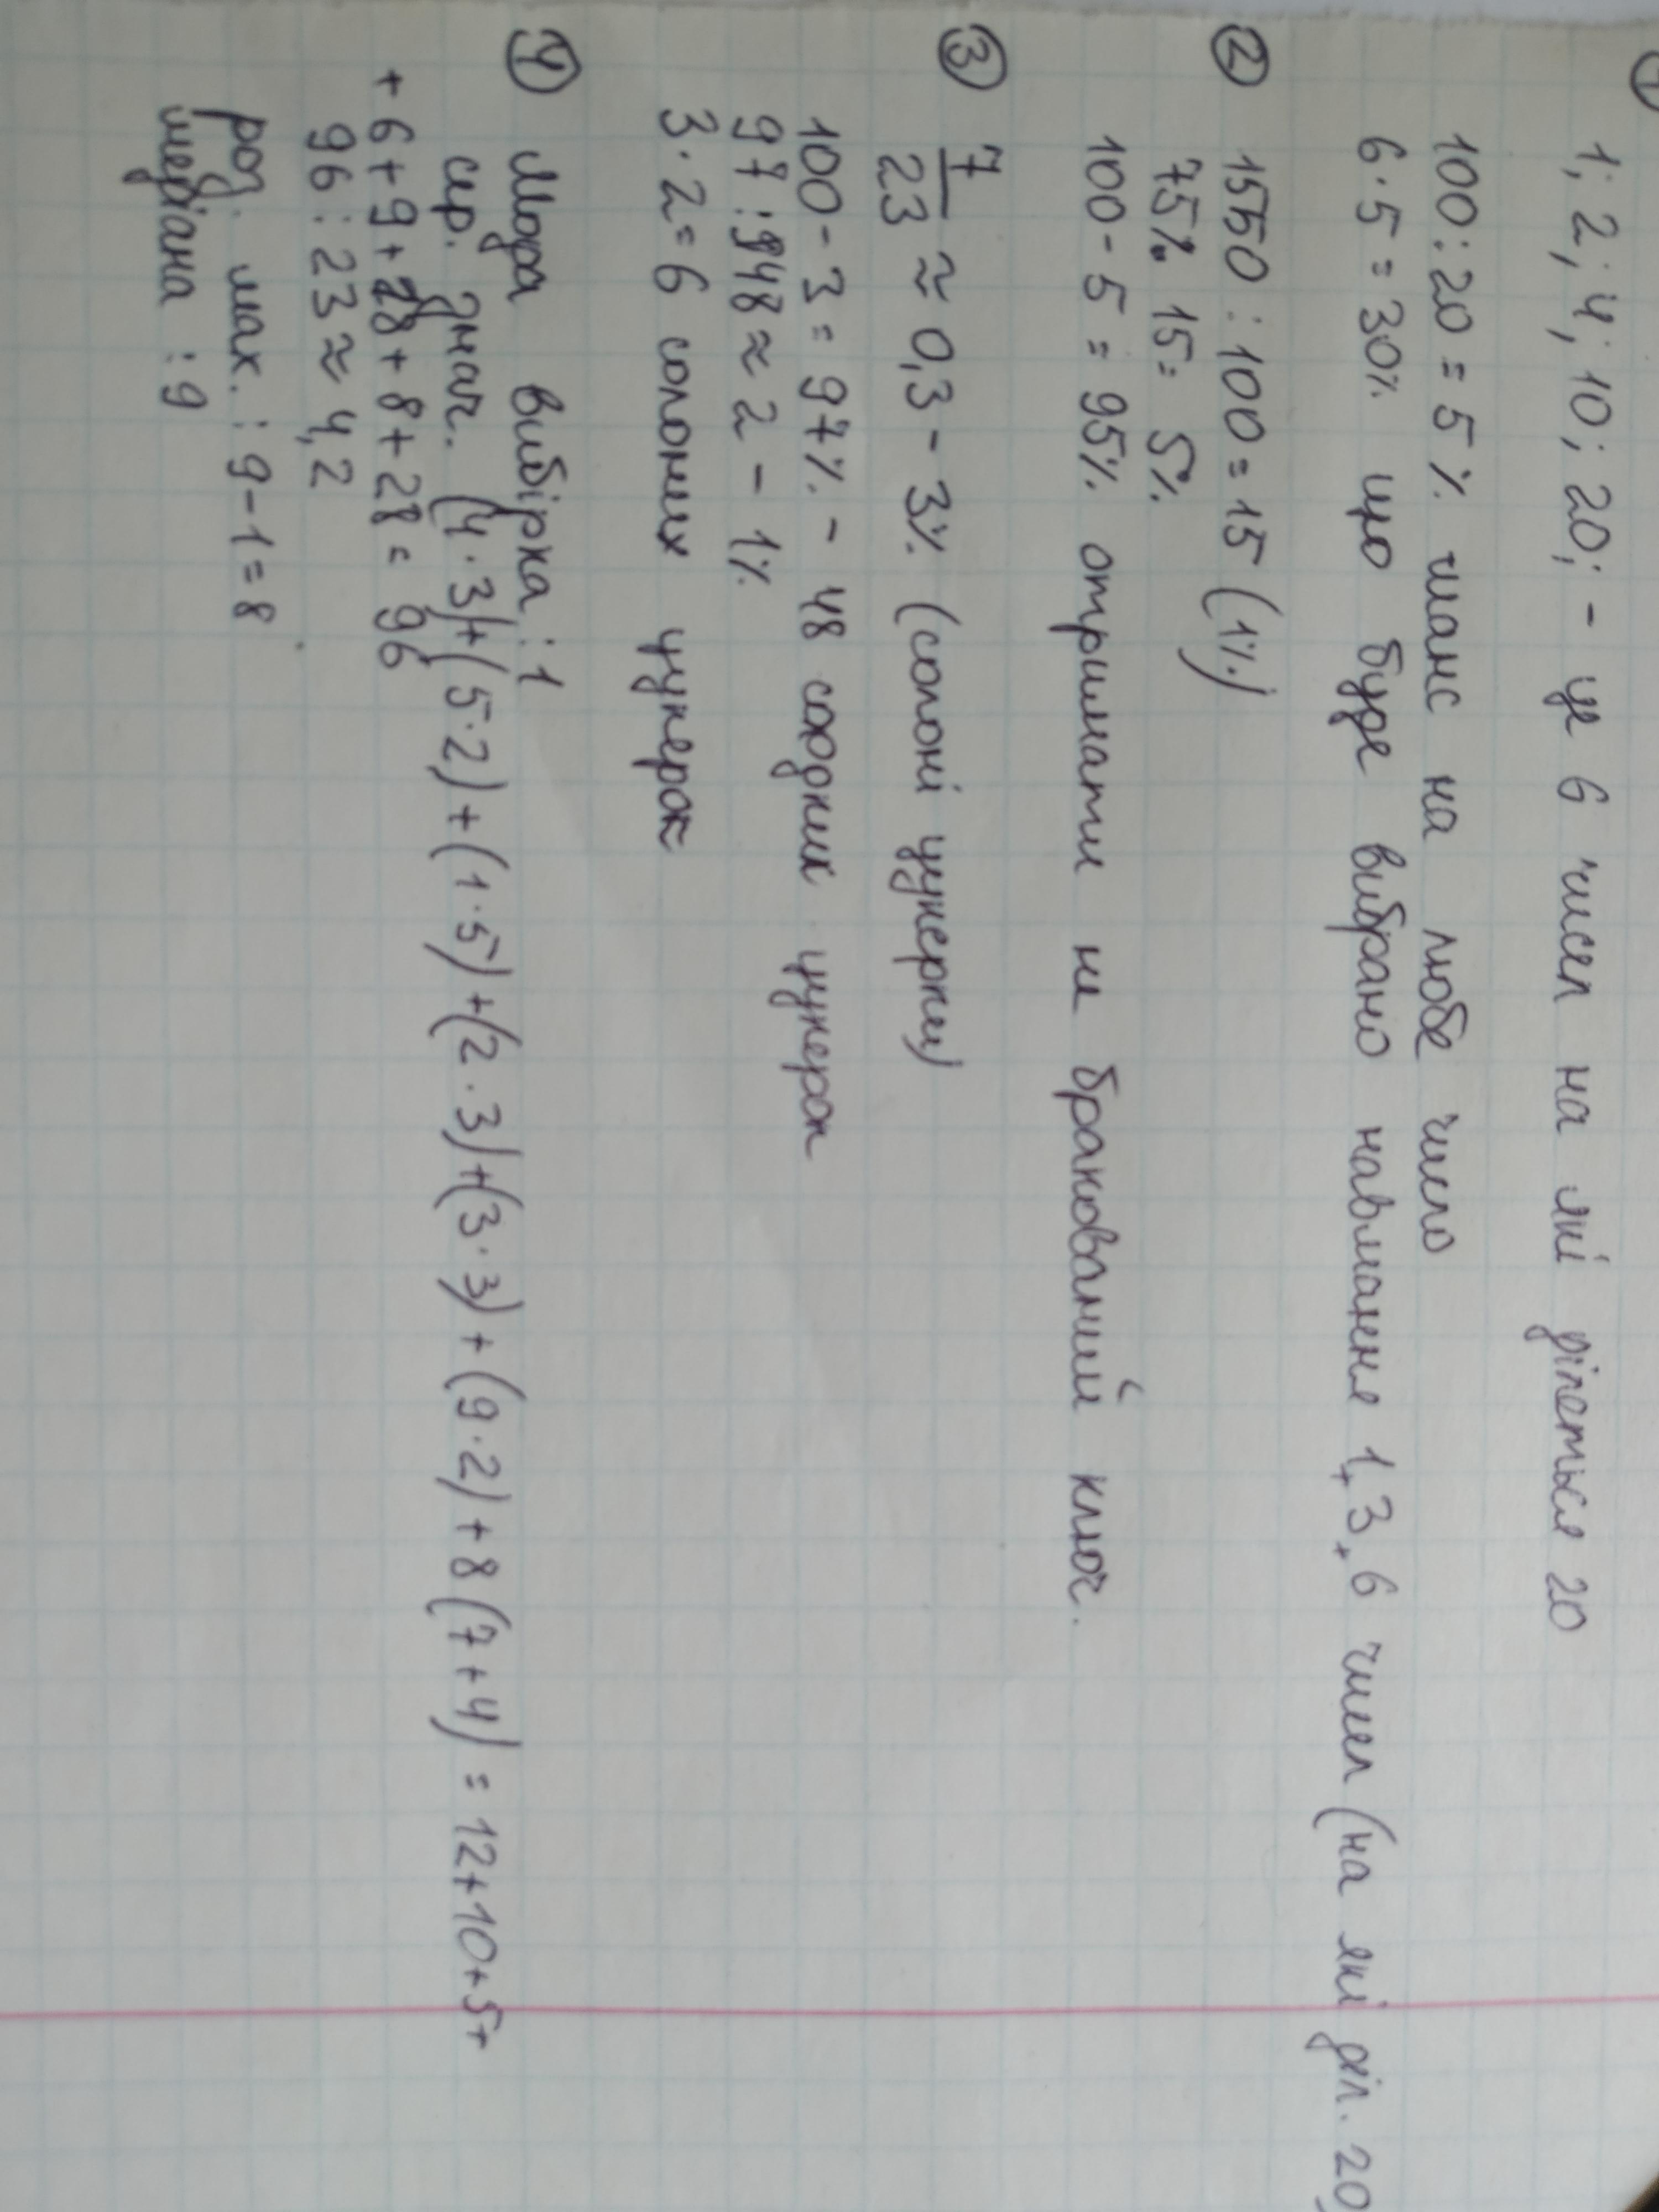 1
1; 2; 4; 10; 20; - це 6 чисел на які ділеться 20
100 : 20 = 5% шанс на любе число
6 · 5 = 30% що буде вибрано навмання 1 з 6 чисел (на які діл. 20)
2 1550 : 100 = 15 (1%)
75% 15 = 5%
100 - 5 = 95% отримати не бракований ключ.
3 7/23 ≈ 0,3 - 3% (солоні цукерки)
100 - 3 = 97% - 48 солодких цукерок
97 : 948 ≈ 2 - 1%
3 · 2 = 6 солоних цукерок
4 Мода вибірка : 1
сер. знач. (4 · 3) + (5 · 2) + (1 · 5) + (2 · 3) + (3 · 3) + (9 · 2) + 8 (7 + 4) = 12 + 10 + 5 +
+ 6 + 9 + 28 + 8 + 28 = 96
96 : 23 ≈ 4,2
роз. мах. : 9 - 1 = 8
медіана : 9